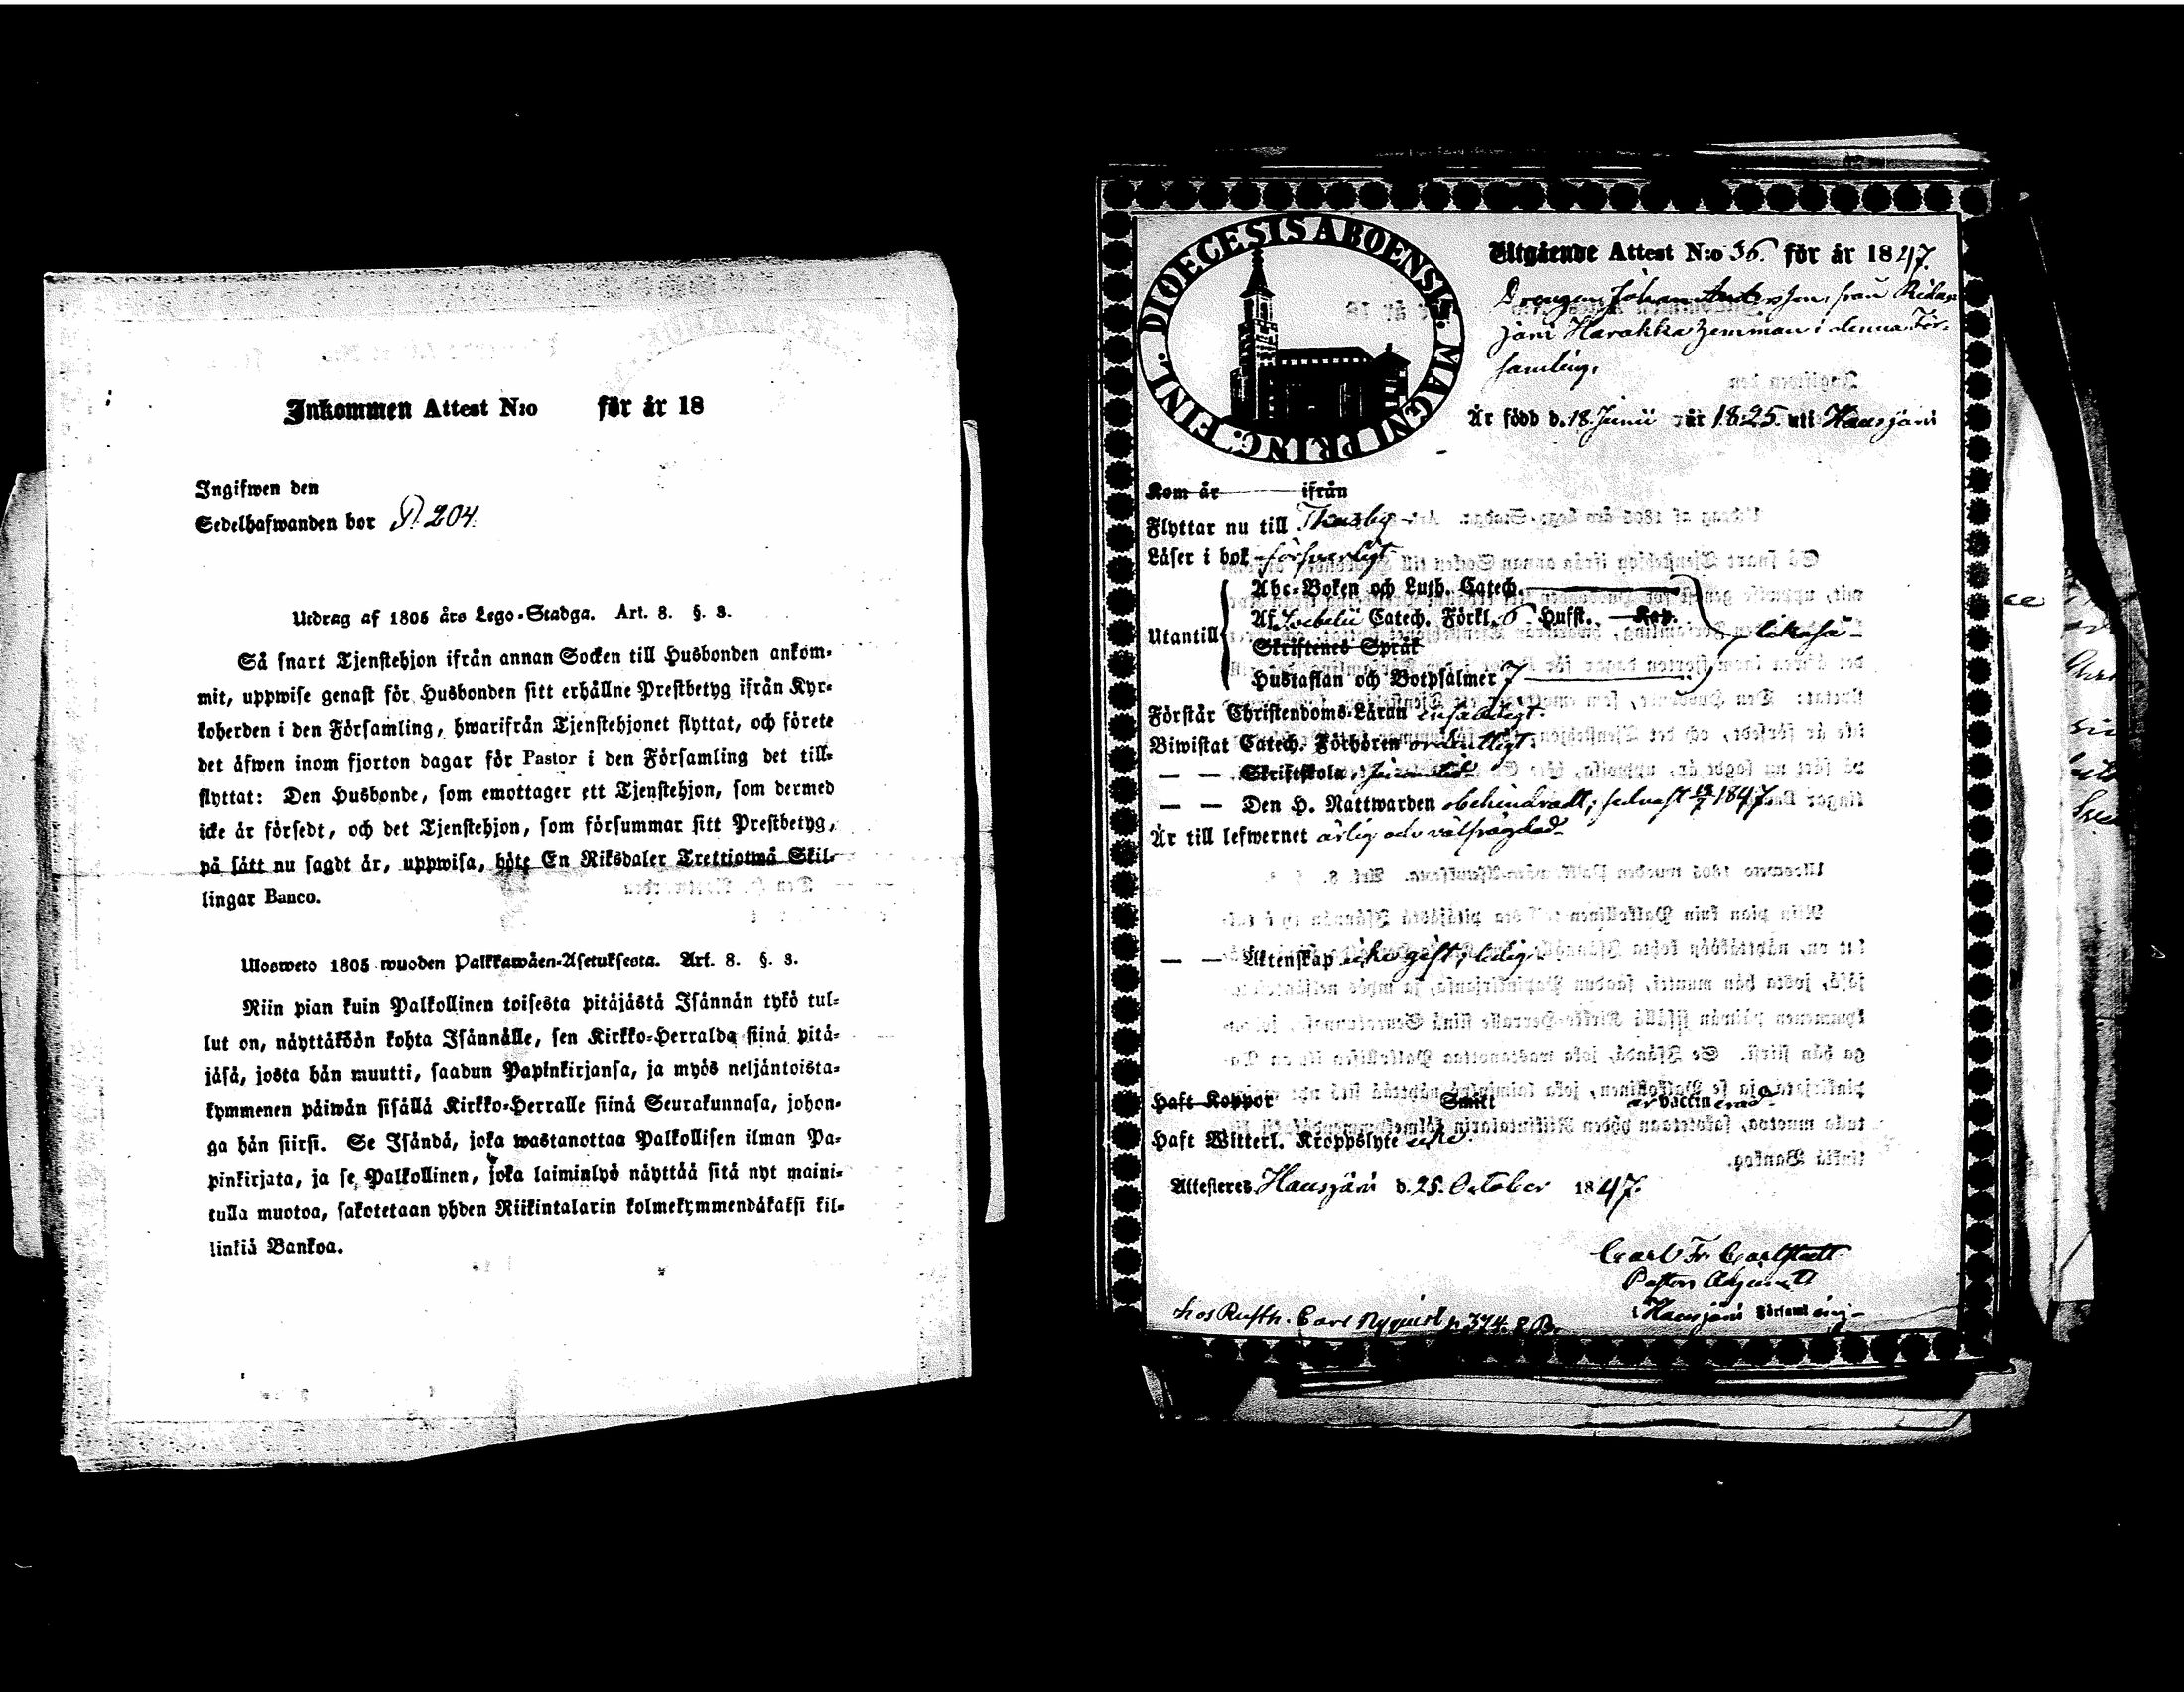 Inkommen Attest N:o för år 18
Ingifwen den
Sedelhafwanden bor P. 204.
Utdrag af 1805 års Lego-Stadga. Art. 8. §. 3.
Så snart Tjenstehjon ifrån annan Socken till Husbonden ankom-
mit, uppwise genast för Husbonden sitt erhållne Prestbetyg ifrån Kyr-
koherden i den Församling, hwarifrån Tjenstehjonet flyttat, och förete
det äfwen inom fjorton dagar för Pastor i den Församling det till-
flyttat: Den Husbonde, som emottager ett Tjenstehjon, som dermed
icke är försedt, och det Tjenstehjon, som försummar sitt Prestbetyg,
på sätt nu sagdt är, uppwisa, böte En Riksdaler Trettiotwå Skil-
lingar Banco.
Ulosweto 1805 wuoden Palkkawäen-Asetuksesta. Art. 8. §. 3.
Niin pian kuin Palkollinen toisesta pitäjästä Isännän tykö tul-
lut on, näyttäköön kohta Isännälle, sen Kirkko-Herralda siinä pitä-
jäsä, josta hän muutti, saadun Papinkirjansa, ja myös neljäntoista-
kymmenen päiwän sisällä Kirkko-Herralle siinä Seurakunnasa, johon-
ga hän siirsi. Se Isändä, joka wastanottaa Palkollisen ilman Pa-
pinkirjata, ja se Palkollinen, joka laiminlyö näyttää sitä nyt maini-
tulla muotoa, sakotetaan yhden Riikintalarin kolmekymmendäkaksi kil-
linkiä Bankoa.
FINL. DIOECESIS ABOENSIS. MAGNI PRINC.
Utgående Attest N:o 36. för år 1847.
Drengen Johan Andersson, från Ridas
järvi Harakka hemman i denna För-
samling.
Är född d. 18. Junii år 1825. uti Hausjärvi
Kom år ifrån
Flyttar nu till Thusby
Läser i bok försvarligt
Abc-Boken och Luth. Catech.
Af Svebelii Catech. Förkl. 6 Hufst. Kap.
Utantill likaså
Skriftenes Språk
Hustaflan och Botpsalmer 7
Förstår Christendoms-Läran enfaldigt.
Biwistat Catech. Förhören ordentligt.
— — Skriftskola
— — Den H. Nattwarden obehindradt, sednast 1847.
Är till lefwernet ärlig och välfrägdad
— — Äktenskap icke gift, ledig
Haft Koppor Smitt är vaccinerad
Haft Witterl. Kroppslyte icke.
Attesteres Hausjärvi d. 25. October 1847.
Carl Fr. Carlstedt
Pastors Adjunct
i Hausjärvi Församling
hos Rusth. Carl Nyquist p 374.